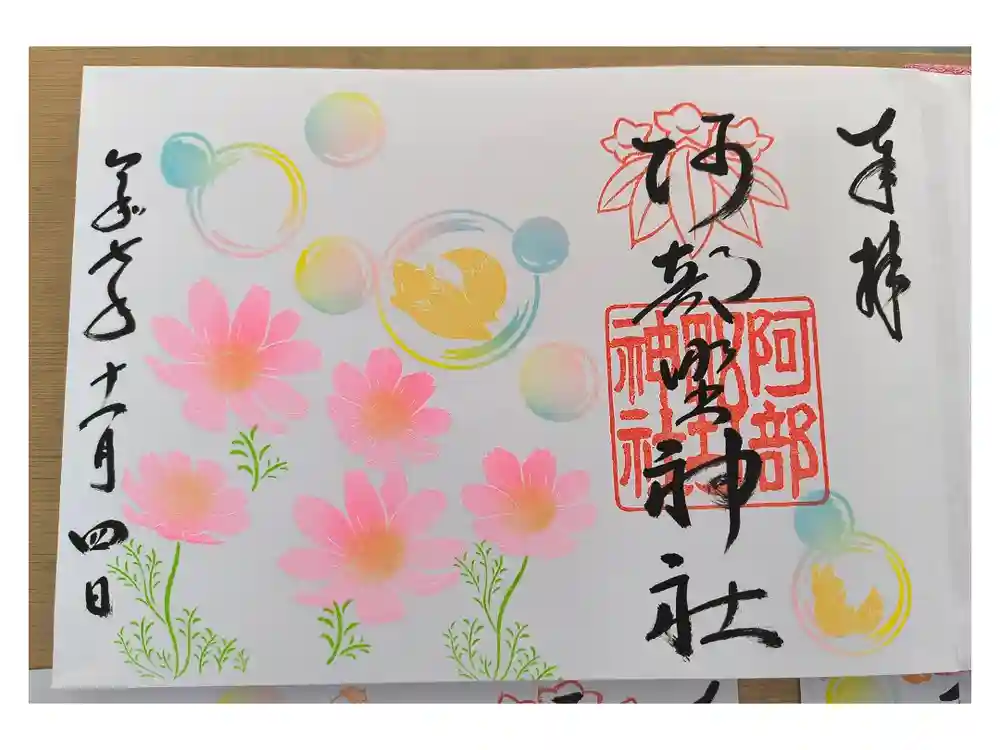 奉拝
阿部野神社
阿部
野
神社
令和七年十一月四日